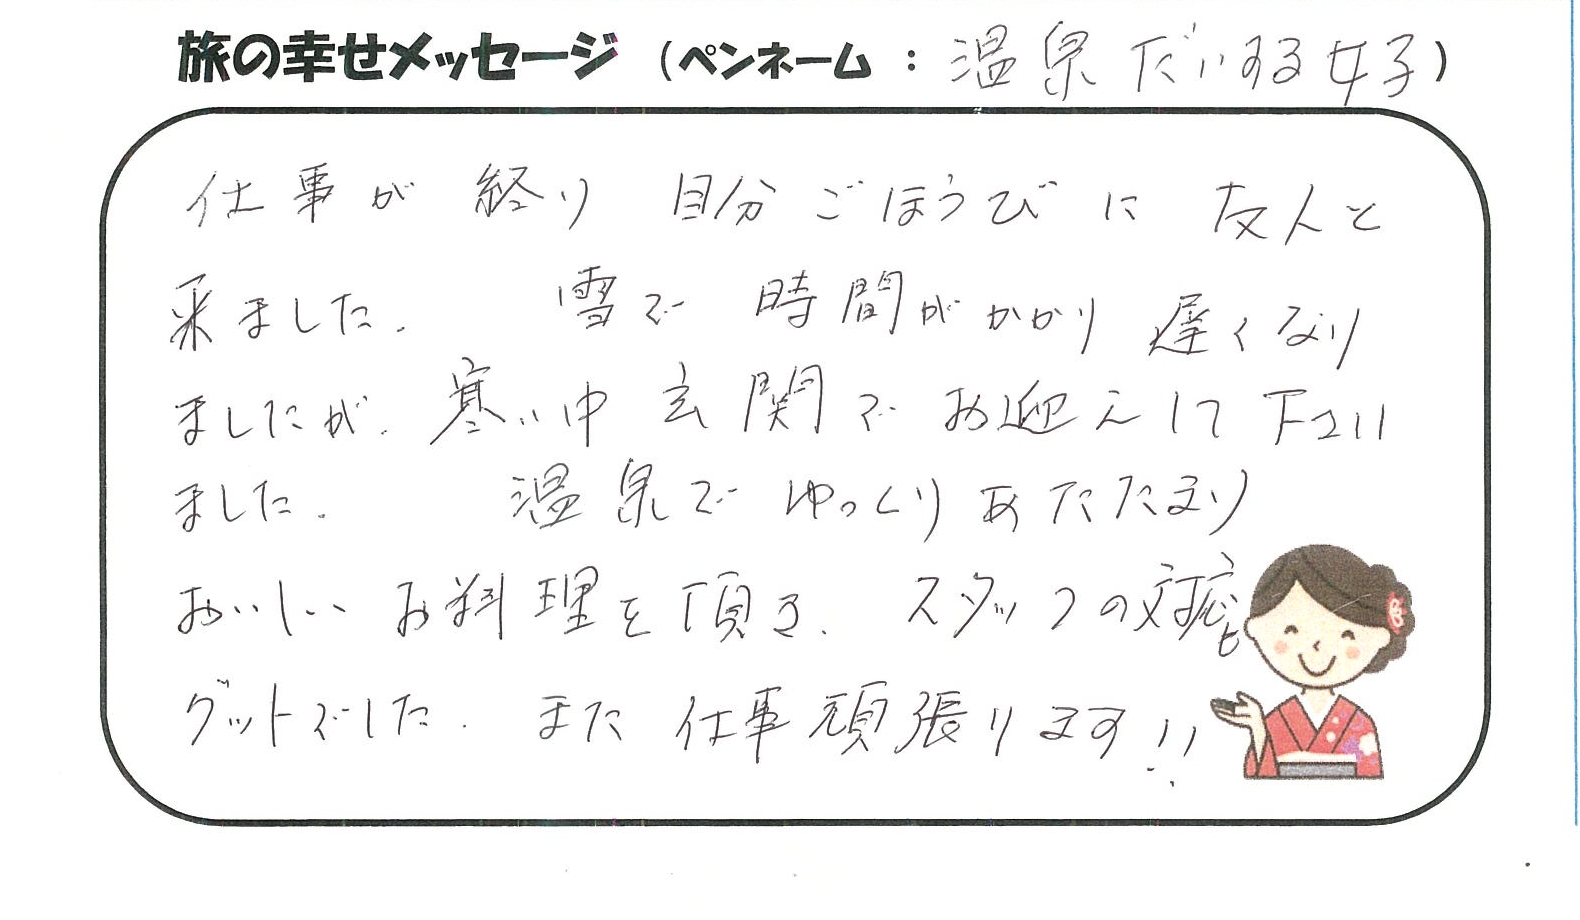 旅の幸せメッセージ（ペンネーム：温泉だいする女子）
仕事が終り 自分ごほうびに 友人と
来ました. 雪で 時間がかかり 遅くなり
ましたが. 寒い中 玄関で お迎えして 下さい
ました. 温泉で ゆっくり あたたまり
おいしい お料理を 頂き. スタッフの対応も
グットでした. また 仕事 頑張ります!!